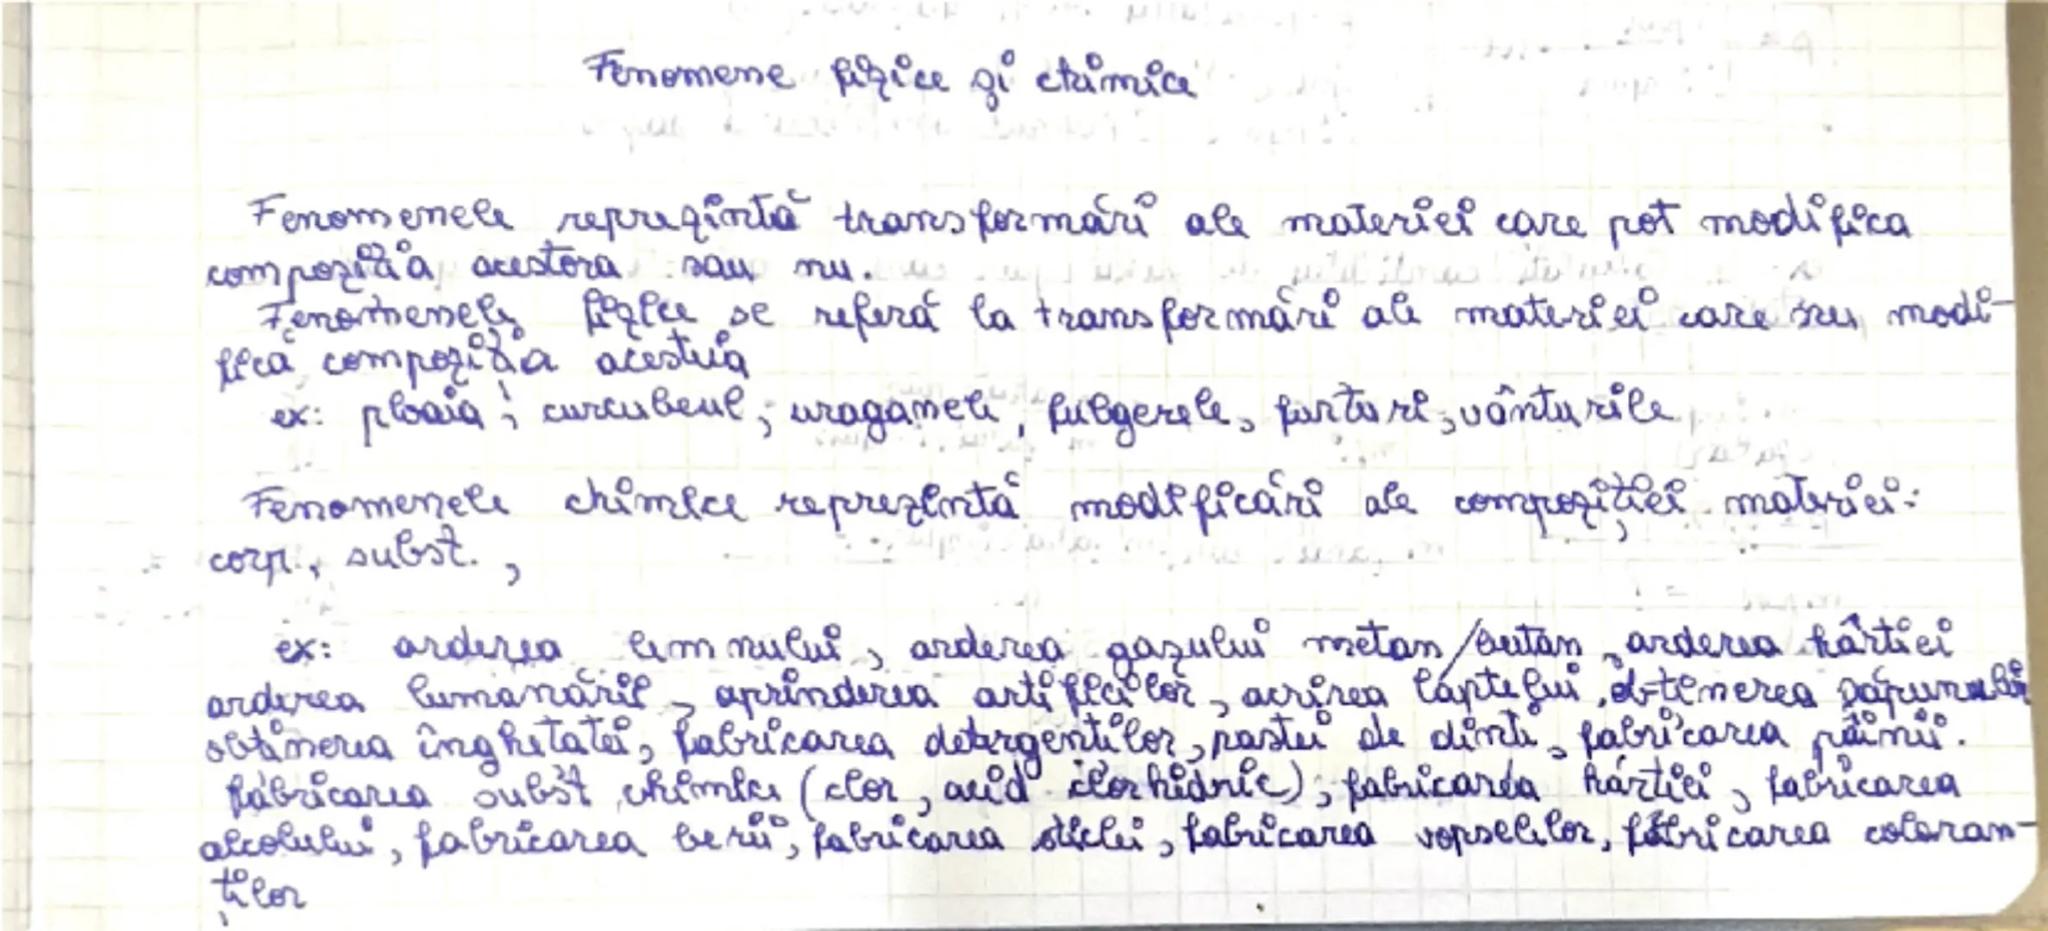 Fenomene fizice și chimice
Fenomenele reprezintă transformări ale materiei care pot modifica
compoziția acestora sau nu.
Fenomenele fizice se referă la transformări ale materiei care nu modi-
fică compoziția acestuia
ex: ploaia; curcubeul; uraganele, fulgerele, furturi, vânturile
Fenomenele chimice reprezintă modificări ale compoziției materiei:
corp., subst.,
ex: arderea lemnului, arderea gazului metan/butan, arderea hârtiei
arderea lumanării, aprinderea artificiilor, acrirea laptelui, obtinerea săpunului
obtinerea înghetatei, fabricarea detergentilor, pastei de dinti, fabricarea pâinii.
fabricarea subst chimice (clor, acid clorhidric), fabricarea hârtiei, fabricarea
alcolului, fabricarea berii, fabricarea sticlei, fabricarea vopselelor, fabricarea coloran-
ților